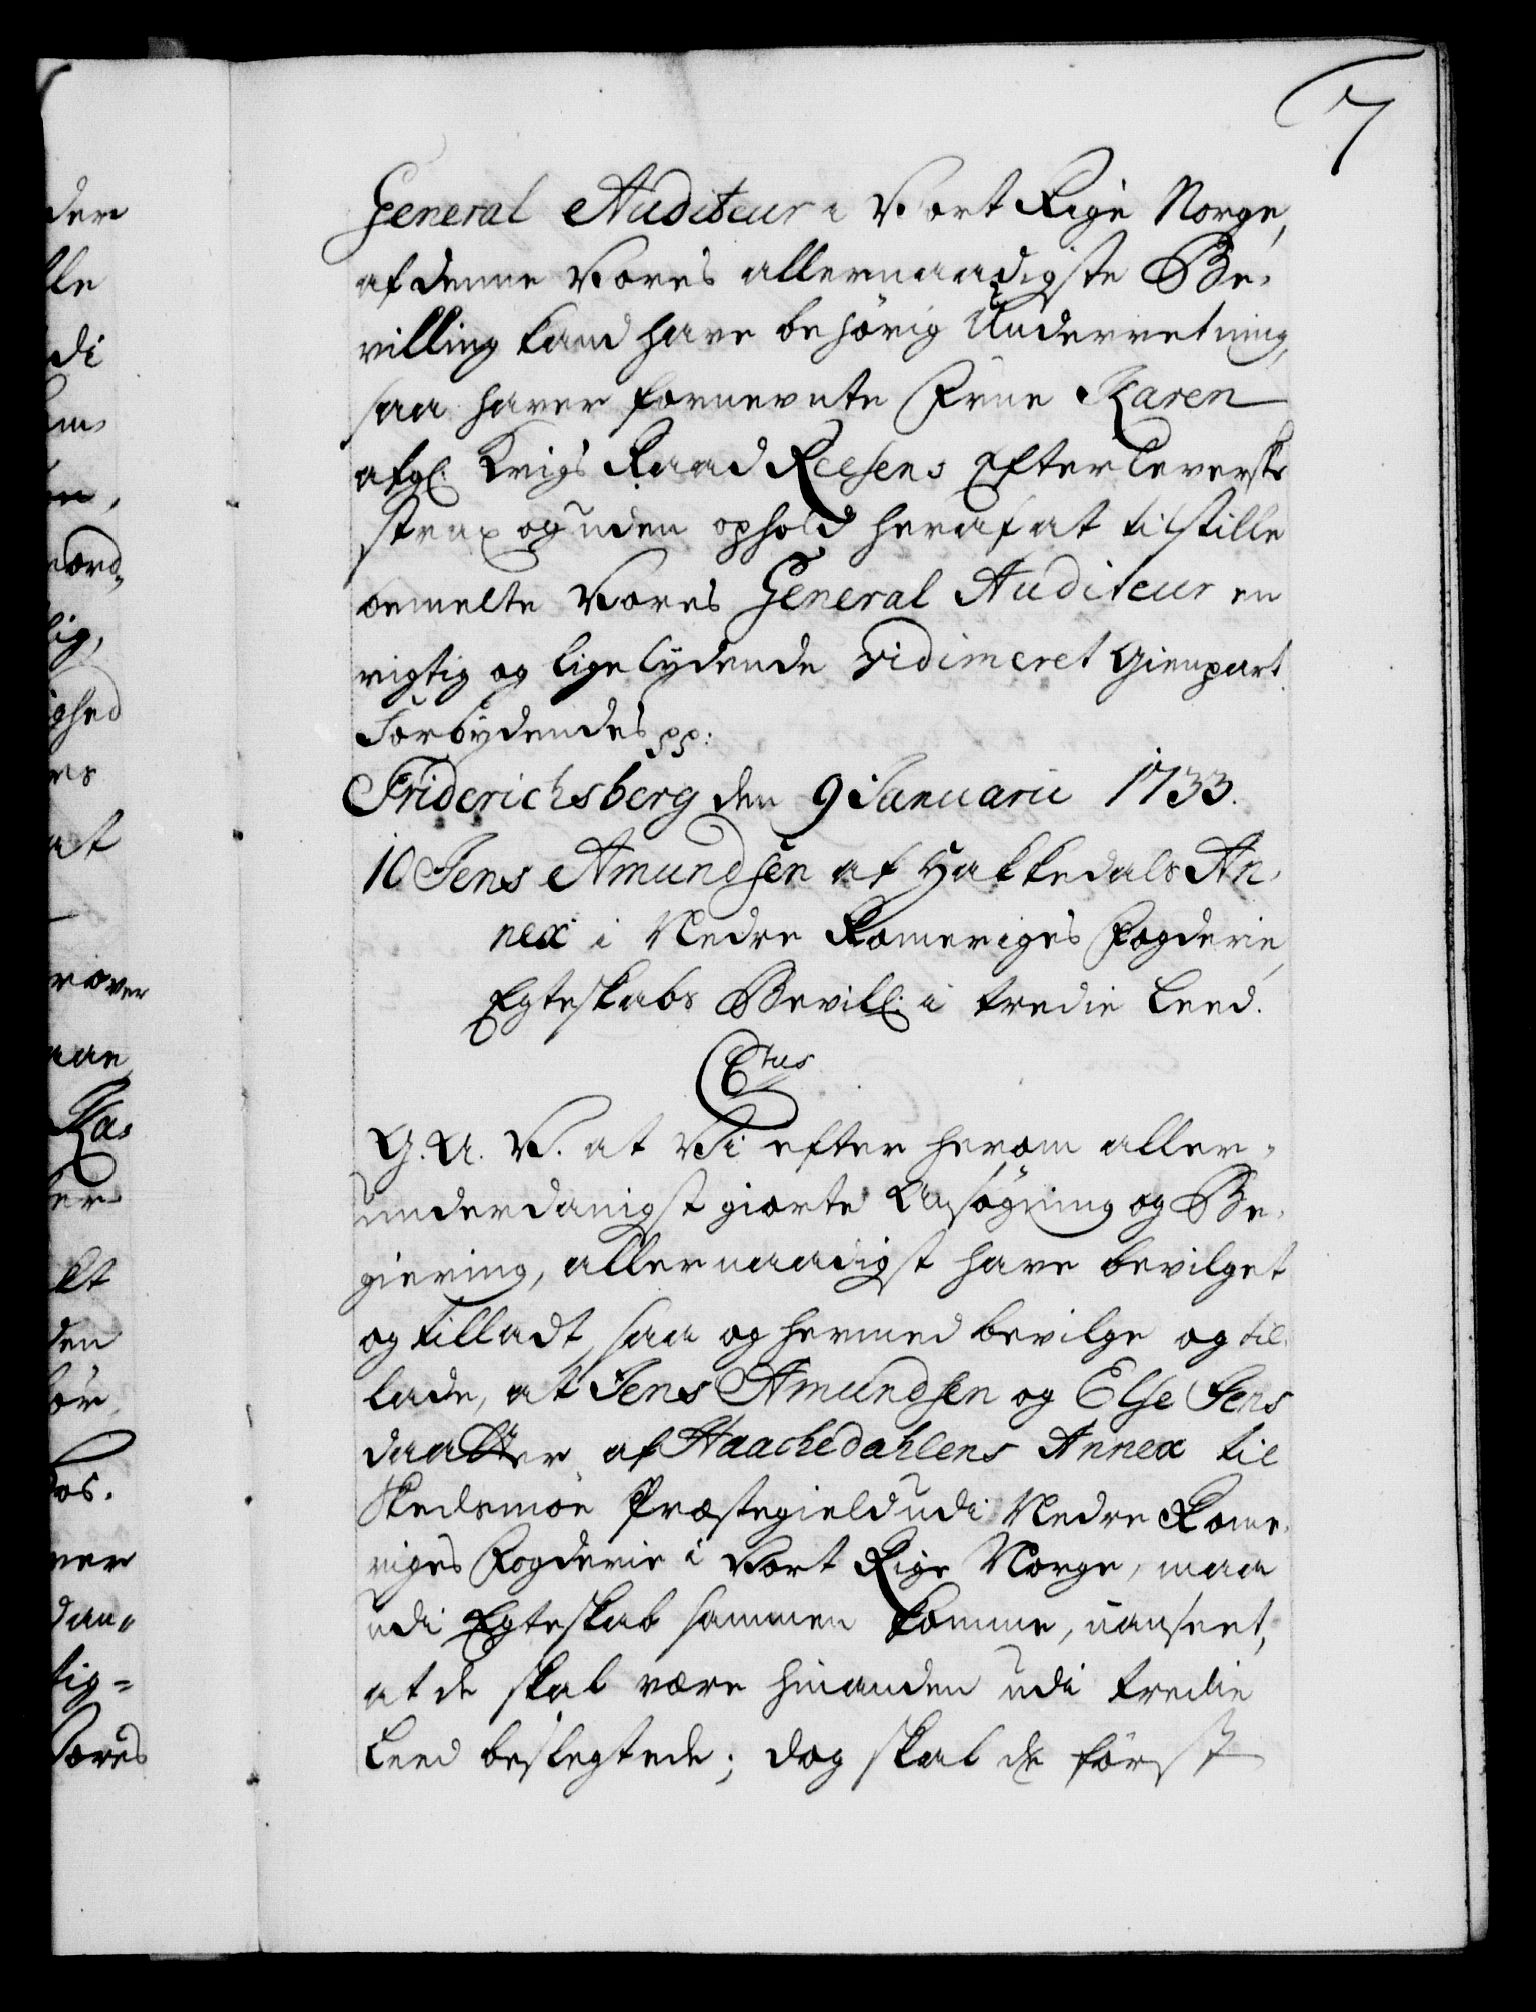 7
General Auditeur i Vort Rige Norge,
af denne Vores allernaadigste Be,
villing kand have behörig Underretning,
saa haver fornevnte Frue Karen
afgl: Krigs Raad Reesens Efterleverske
strax og uden ophold heraf at tilstille
bemelte Vores General Auditeur en
rigtig og ligelydende vidimeret Gienpart.
Forbydendes pp:
Friderichsberg den 9 Januarii 1733.
10 Jens Amundsen af Hakkedals An,
nex i Nedre Romeriges Fogderie,
Egteskabs Bevill: i tredie Leed.
C6tus
G. A. V. at Vi efter herom aller,
underdanigst giorte Ansögning og Be,
giering, allernaadigst have bevilget
og tilladt, saa og hermed bevilge og til,
lade, at Jens Amundsen og Else Jens
daatter af Haachedahlens Annex til
Skedsmöe Præstegield udi Nedre Rome,
riges Fogderie i Vort Rige Norge, maa
udi Egteskab sammen komme, uanseet,
at de skal være hinanden udi tredie
Leed beslegtede; dog skal de först
der
lle
di
en,
lig,
ighed
res
at
over
aae
Ka,
ber
den
ver
dan,,
tig=
Vores